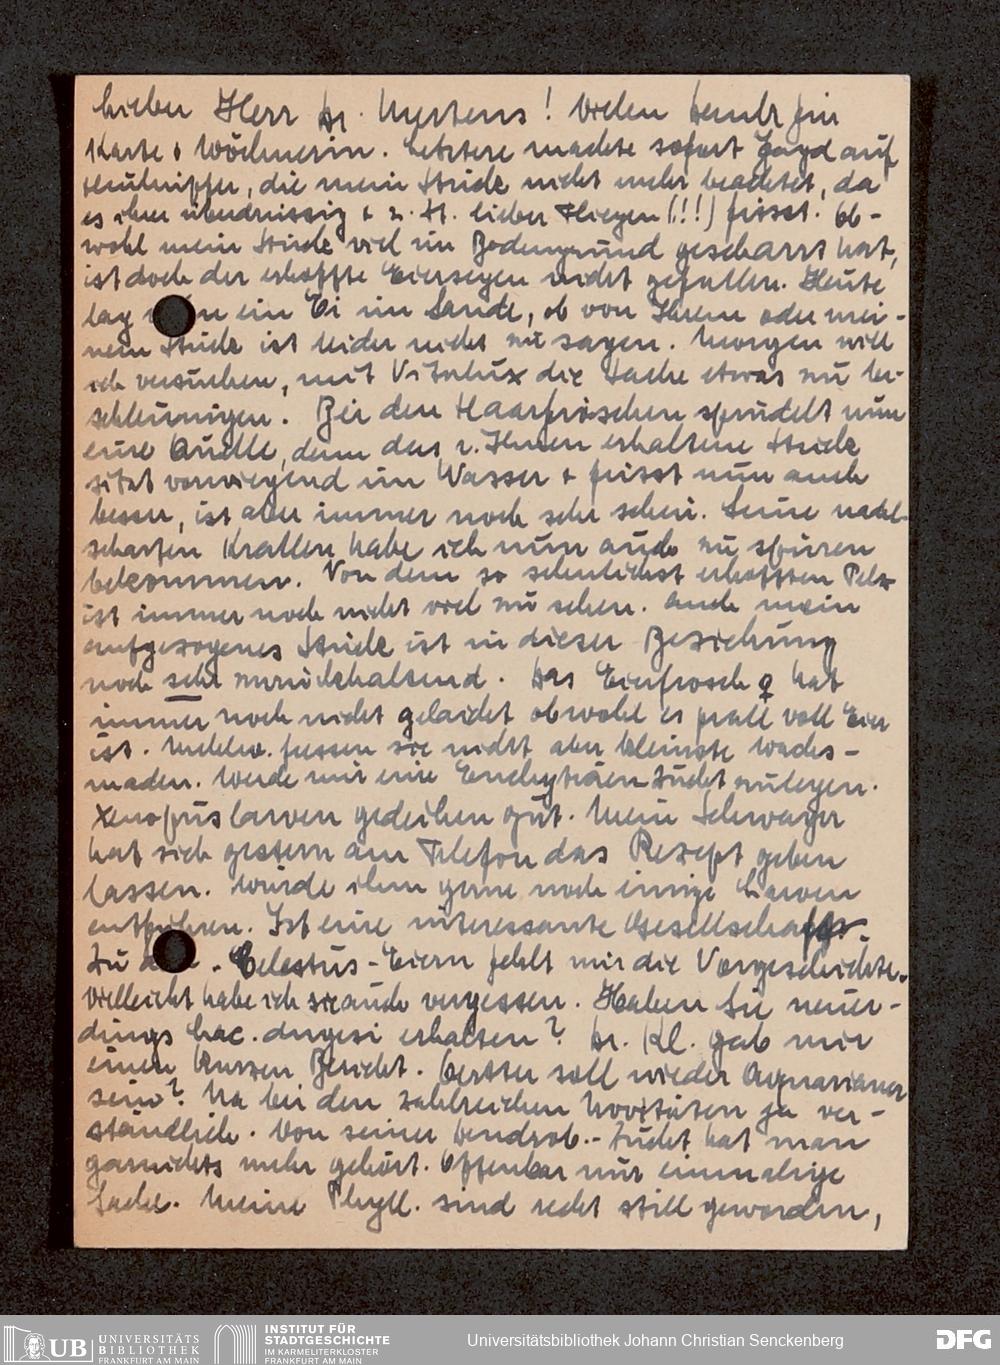 Lieber Herr Dr. Mertens! Vielen Dank für
Karte & Wöchnerin. Letztere machte sofort Jagd auf
, die mein Stück nicht mehr beachtet, da
es ihrer überdrüssig & z. Zt. lieber Fliegen (!!!) frisst. Ob-
wohl mein Stück viel im Bodengrund gescharrt hat,
ist doch der erhoffte Eiersegen nicht gefallen. Heute
lag nun ein Ei im Sande, ob von Ihrem oder mei-
nem Stück ist leider nicht zu sagen. Morgen will
ich versuchen, mit Vitalux die Sache etwas zu be-
schleunigen. Bei den Haarfröschen sprudelt nun
eine Quelle, denn das v. Ihnen erhaltene Stück
sitzt vorwiegend im Wasser & frisst nun auch
besser, ist aber immer noch sehr scheu. Seine nadel-
scharfen Krallen habe ich nun auch zu spüren
bekommen. Von dem so sehnlichst erhofften Pelz
ist immer noch nicht viel zu sehen. Auch mein
aufgezogenes Stück ist in dieser Beziehung
noch sehr zurückhaltend. Das Eierfrosch ♀ hat
immer noch nicht gelaicht obwohl es prall voll Eier
ist. Mehlw. fressen sie nicht aber kleinste Wachs-
maden. Werde mir eine Enchyträen Zucht zulegen.
Xenopuslarven gedeihen gut. Mein Schwager
hat sich gestern am Telefon das Rezept geben
lassen. Würde ihm gerne noch einige Larven
entführen. Ist eine interessante Gesellschaft.
Zu den Celestus-Eiern fehlt mir die Vorgeschichte.
Vielleicht habe ich sie auch vergessen. Haben Sie neuer-
dings Lac. dugesi erhalten? Dr. Kl. gab mir
einen kurzen Bericht. Oertter soll wieder Aquarianer
sein? Na bei den zahlreichen Novitäten ja ver-
ständlich. Von seiner Dendrob.-Zucht hat man
garnichts mehr gehört. Offenbar nur einmalige
Sache. Meine Phyll. sind recht still geworden,
UB UNIVERSITÄTS
BIBLIOTHEK
FRANKFURT AM MAIN
INSTITUT FÜR
STADTGESCHICHTE
IM KARMELITERKLOSTER
FRANKFURT AM MAIN
Universitätsbibliothek Johann Christian Senckenberg
DFG